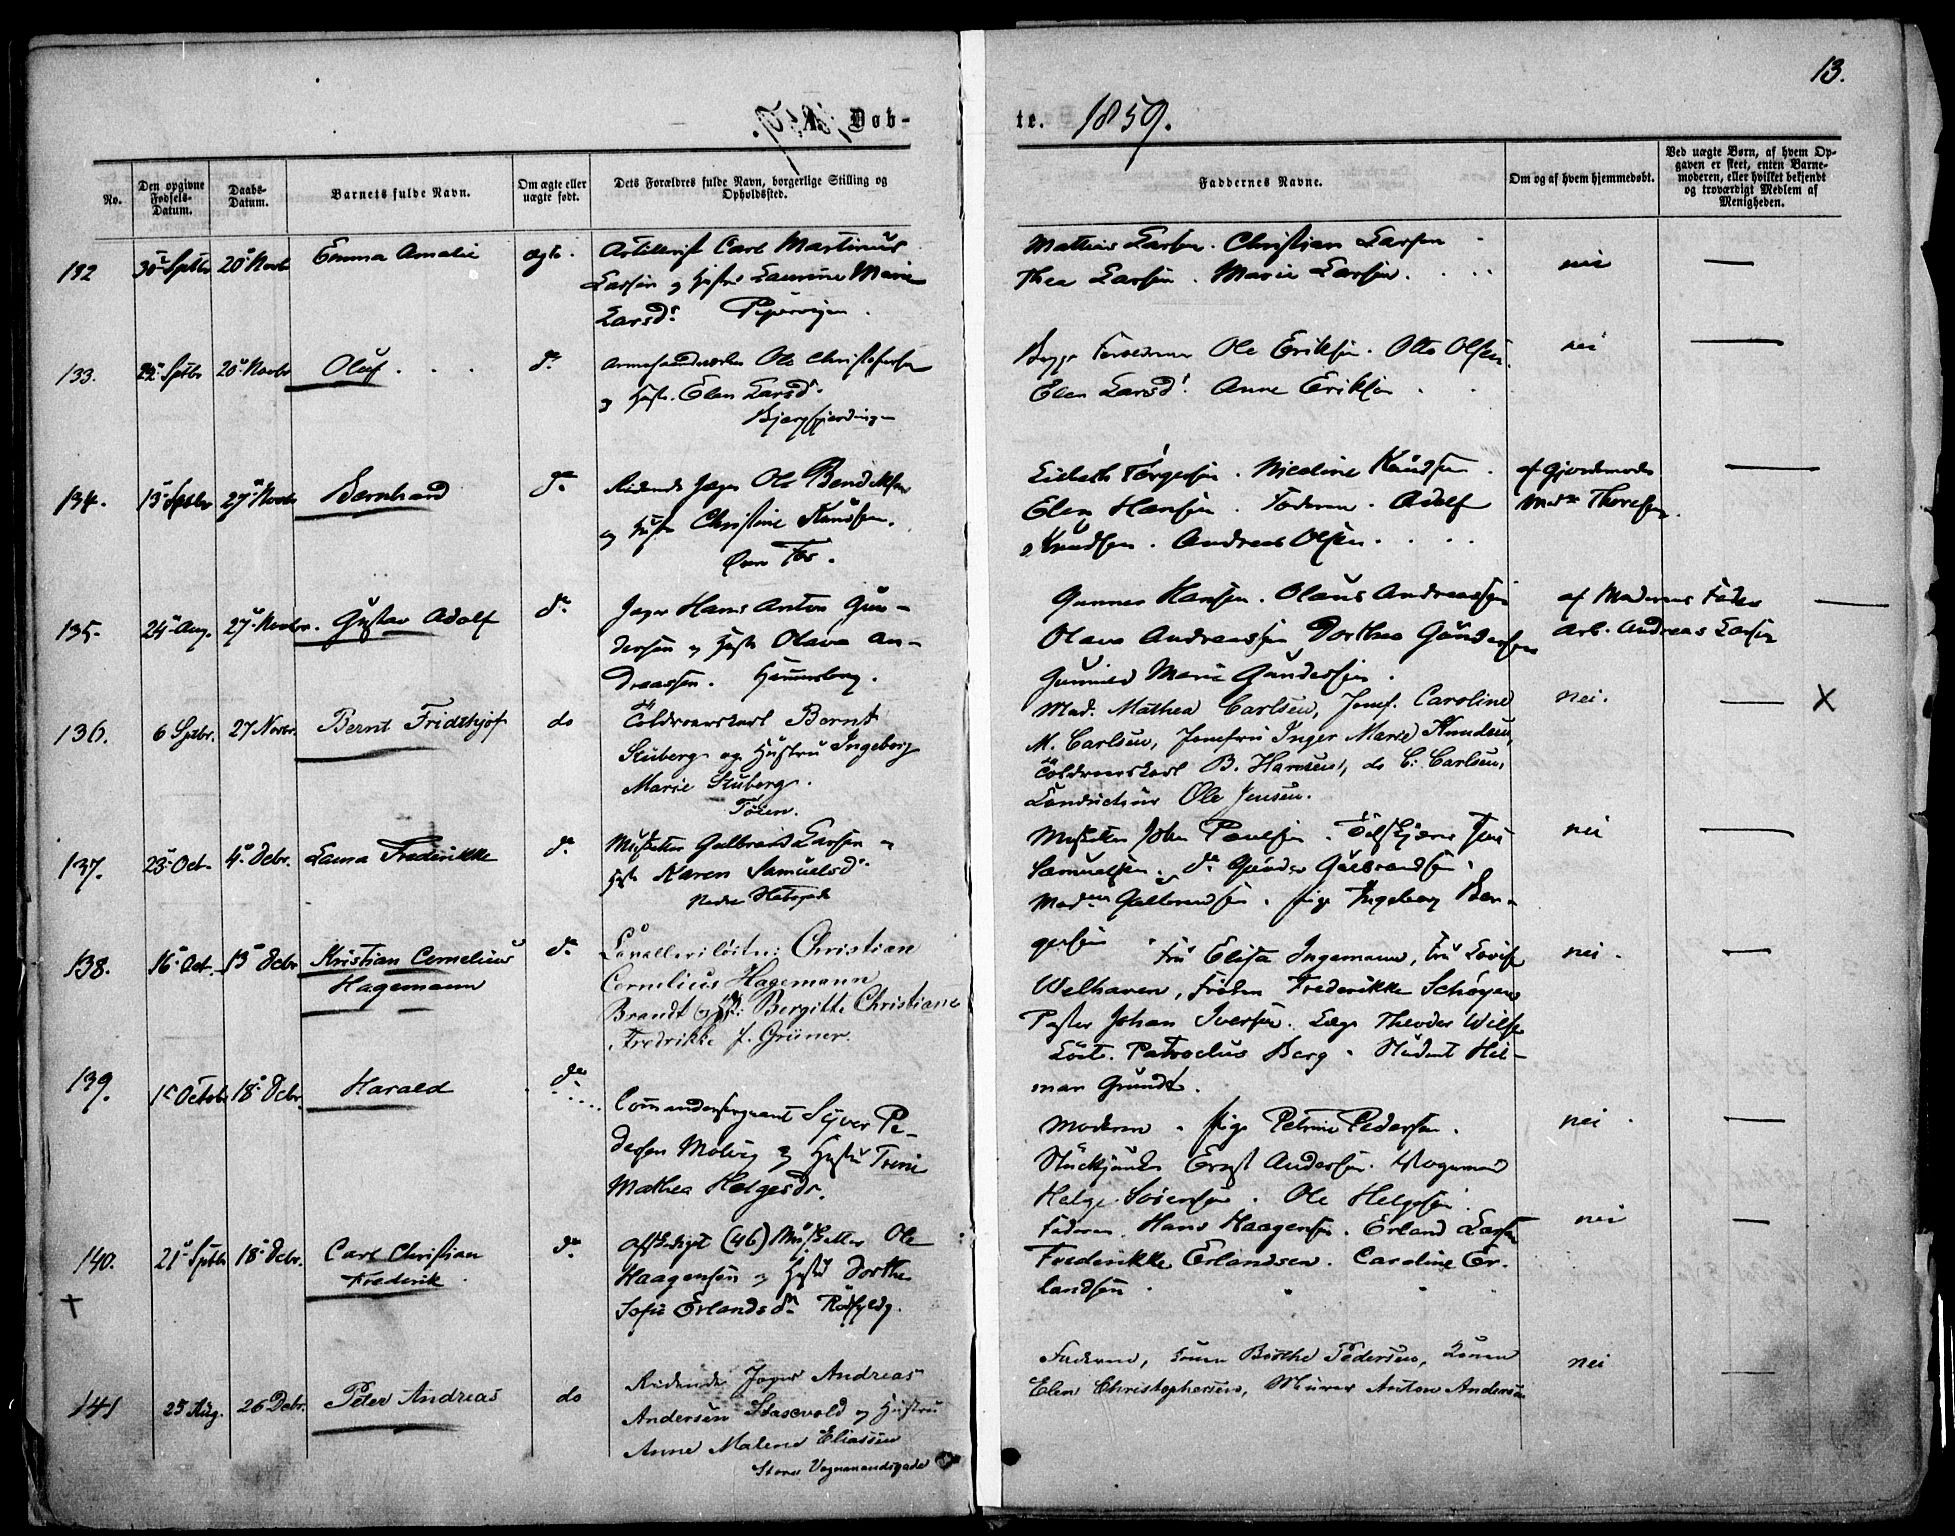 13.
Døb-
te. 1859.
No.
Den opgivne Fødsels-Datum.
Daabs-Datum.
Barnets fulde Navn.
Om ægte eller uægte født.
Dets Forældres fulde Navn, borgerlige Stilling og Opholdssted.
Faddernes Navne.
Om og af hvem hjemmedøbt.
Ved uægte Børn, af hvem Opgaven er skeet, enten Barnemoderen, eller hvilket bekjendt og troværdigt Medlem af Menigheden.
132 30 Septbr 20 Novbr Emma Amalie ægte.
Artillerist Carl Martinus
Larsen og Hustru Laurine Marie
Larsd. Pipervigen.
Mathias Larsen. Christian Larsen
Thea Larsen. Marie Larsen.
nei —
133. 22 Septbr 20 Novbr Oluf d°
Ole Christophersen
og Hustr. Elen Larsd.
Bjergfjerdingen
Begge Forældrene Ole Eriksen. Otto Olsen.
Elen Larsd. Anne Eriksen
nei —
134. 15 Septbr 27 Novbr Bernhard d°
Ridende Jæger Ole Bendiksen
og Hustr Christine Knudsen.
Øvre Foss.
Lisbeth Torgersen. Nicoline Knudsen.
Elen Hansen. Faderen. Adolf
Knudsen. Andreas Olsen.
af Gjordemoder
Mad. Thoresen.
—
135. 24 Aug. 27 Novbr. Gustav Adolf d°
Jæger Hans Anton Gun-
dersen og Hustr Olava An-
dreassen. Hammersborg.
Gunner Hansen. Olaus Andreassen
Olava Andreassen Dorthea Gundersen
Gunnild Marie Gundersen.
af Moderens Fader
Arb. Andreas Larsen
—
136. 6 Septbr. 27 Novbr. Bernt Fridthjof do
Coldroerskarl Bernt
Stuberg og Hustru Ingeborg
Marie Stuberg.
Tøien.
Mad. Mathea Carlsen, Jomf. Caroline
M. Carlsen, Jomfru Inger Marie Knudsen,
Coldroerskarl B. Hansen, do C. Carlsen,
Conducteur Ole Jensen.
nei. — X
137. 23 Oct. 4 Decbr. Laura Frederikke d°
Musketer Gulbrand Larsen og
Hustr Karen Samuelsd.
Nedre
Musketer John Paulsen. Jens
Samuelsen. d° Gunder Gulbrandsen.
Mad. Gulbrandsen. Pige Ingeborg Ber-
gersen
nei —
138. 16 Oct. 13 Decbr Kristian Cornelius
Hagemann d°
Cavallerilöitn: Christian
Cornelius Hagemann
Brandt og Hst: Bergitte Christiane
Fredrikke f. Grüner.
Fru Elisa Ingemann, Fru Lovise
Welhaven, Frøken Frederikke Schøyen
Pastor Johan Iversen. Læge Theodor Wilse
Löitn. Patroclus Berg. Student Hil-
mar Grundt.
nei. —
139. 1 Octobr 18 Decbr. Harald d°
Commandersergeant Syver Pe-
dersen Molvig og Hustru Trine
Mathea Helgesdr.
Moderen. Pige Petrine Pedersen.
Stückjunker Ernst Andersen. Vognmand
Helge Sörensen. Ole Helgesen.
nei. —
140. 21 Septbr 18 Decbr. Carl Christian
Frederik. d°
Afskediget (46) Musketer Ole
Haagensen og Hustr Dorthe
Sofie Erlandsdr.
Faderen. Hans Haagensen. Erland Larsen
Frederikke Erlandsen. Caroline Er-
landsen.
nei —
†
141 25 Aug. 26 Decbr. Peter Andreas do
Ridende Jæger Andreas
Andersen og Hustru
Anne Malene Eliassen
Store Vognmandsgade
Faderen, Konen Birthe Pedersen, Konen
Elen Christophersen, Murer Anton Andersen
nei —